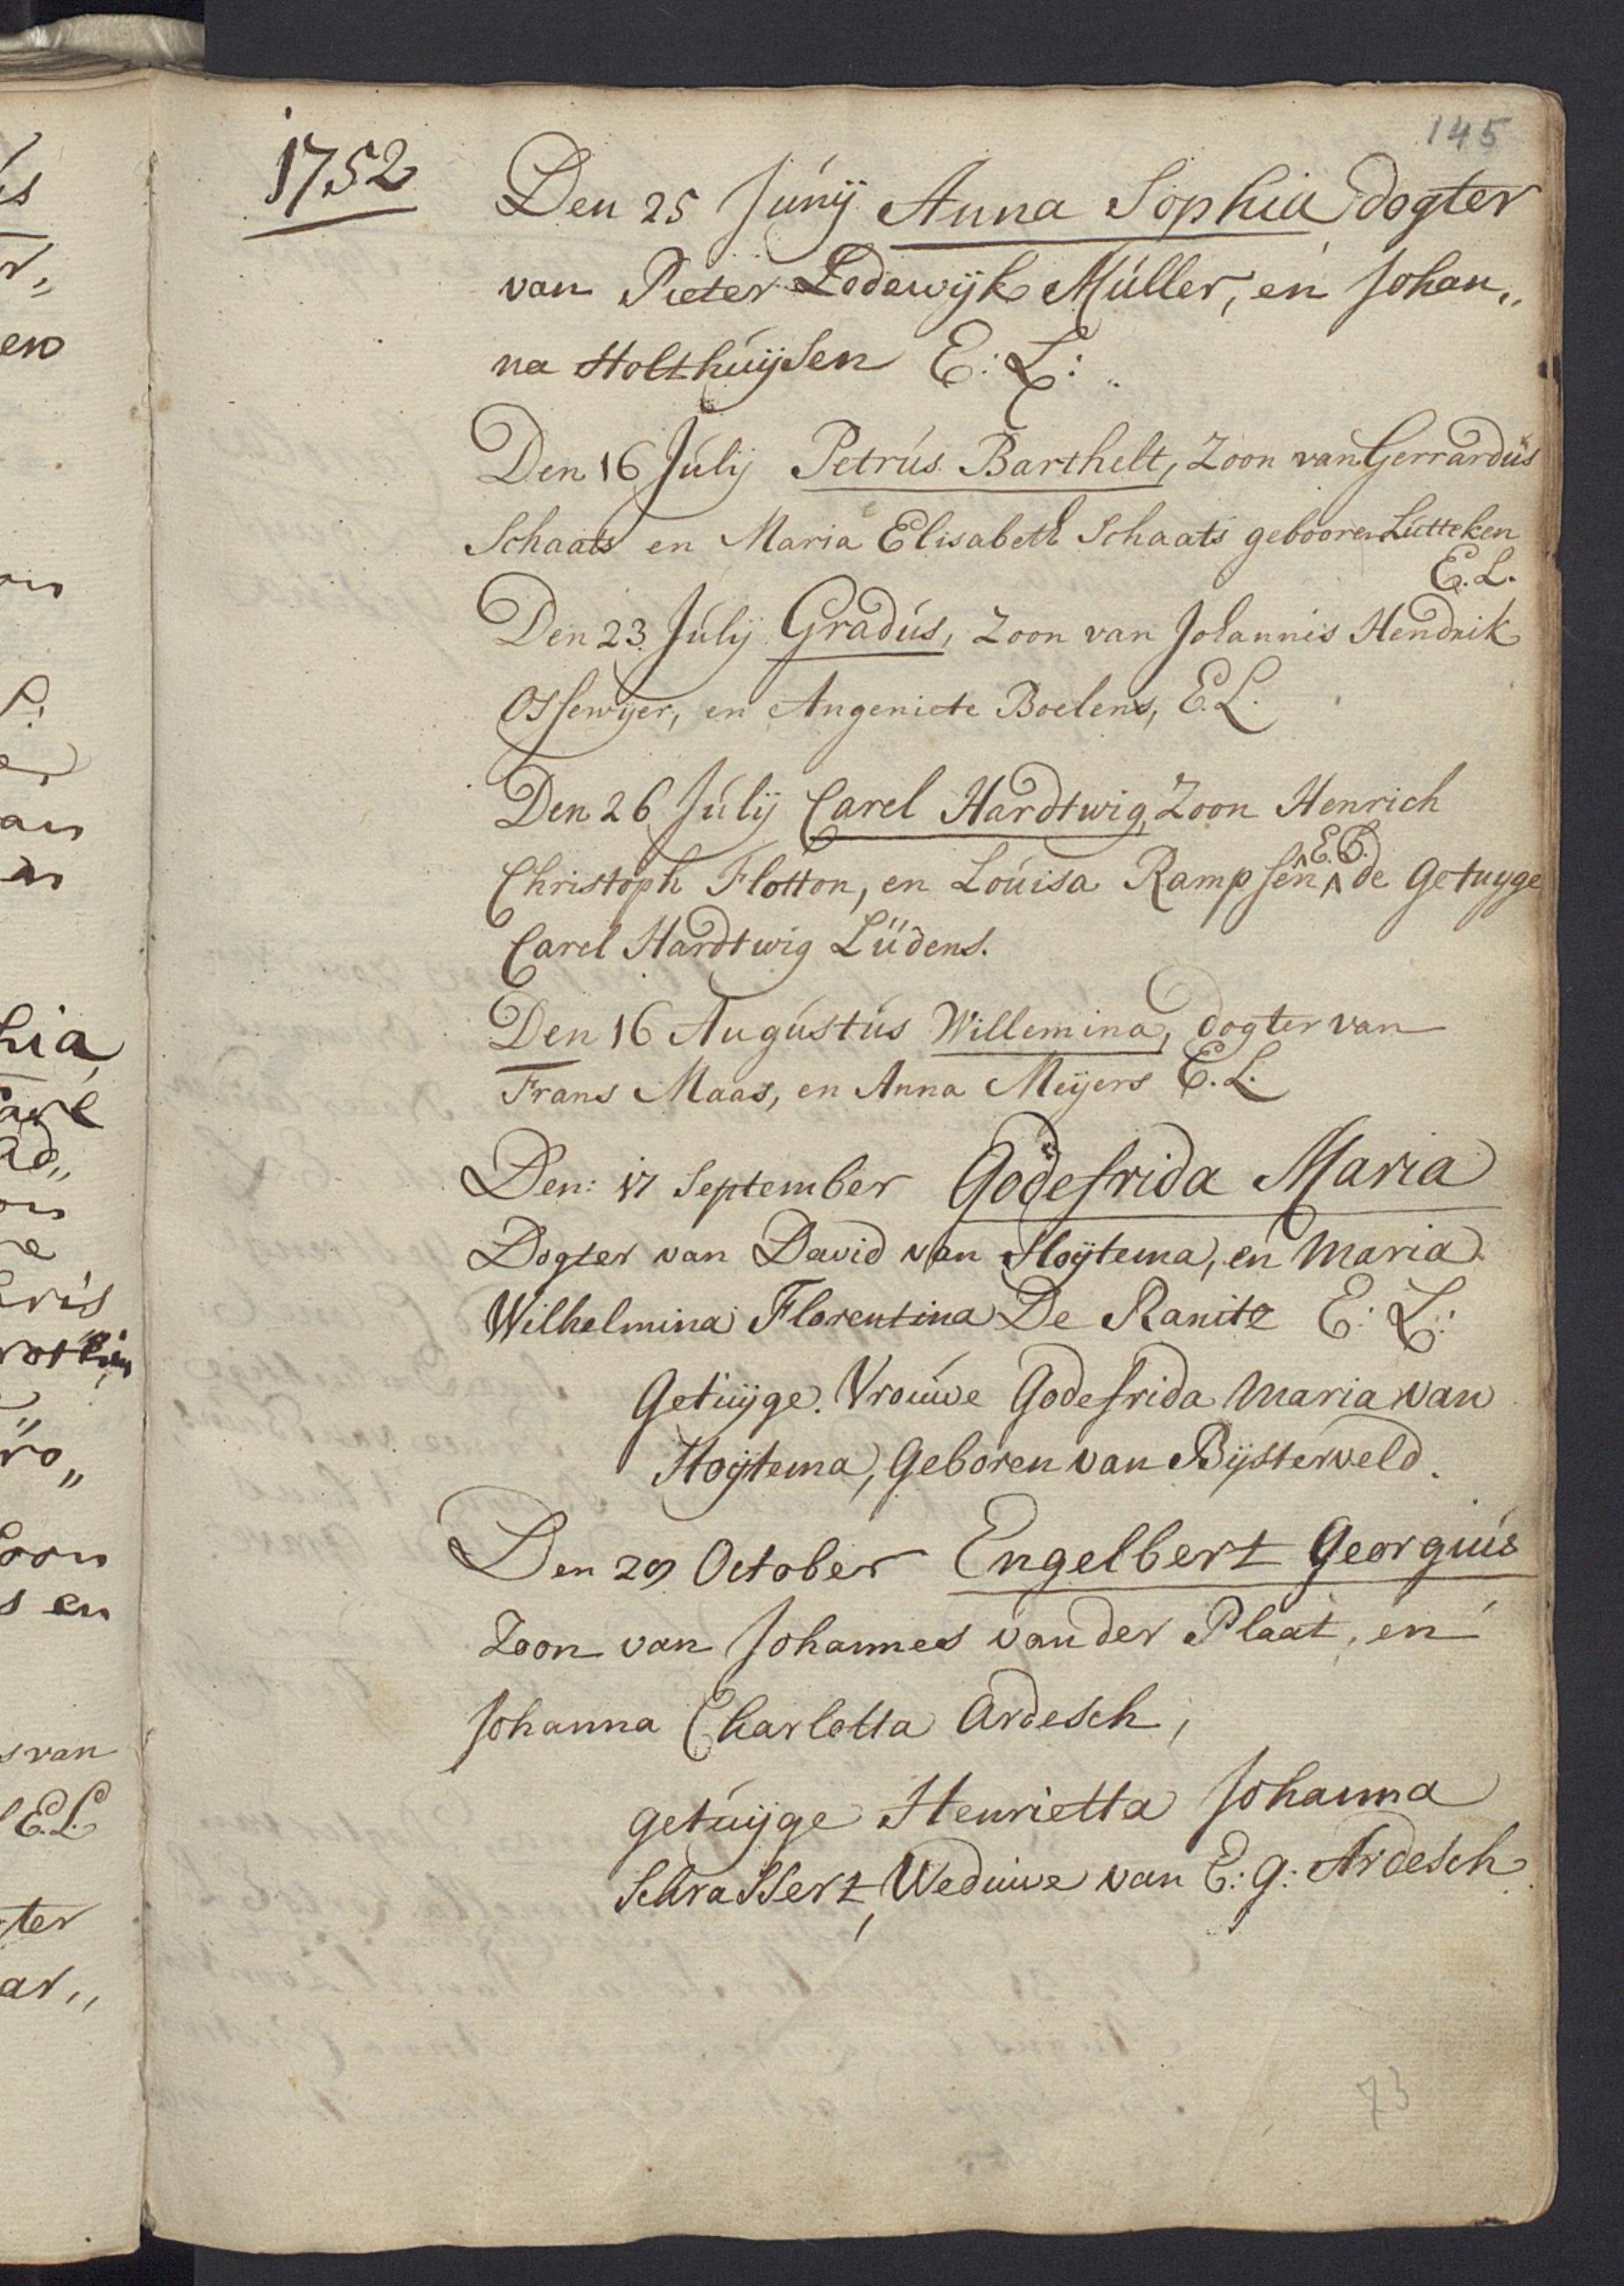 145
1752
Den 25 Junij Anna Sophia dogter
van Pieter Lodewijk Müller, en Johan„
na Holthuijsen E: L:
Den 16 Julij Petrus Barthelt, Zoon van Gerrardus
Schaats en Maria Elisabeth Schaats gebooren Lutteken
E. L.
Den 23. Julij Gradus, Zoon van Johannis Hendrik
Ossewijer, en Angeniete Boelens, E. L.
Den 26 Julij Carel Hardtwig, Zoon Henrich
E. L.
Christoph Flotton, en Louisa Rampsen ^ de Getuyge
Carel Hardtwig Lüdens.
Den 16 Augustus Willemina, dogter van
Frans Maas, en Anna Meijers E. L.
Den: 17 September Godefrida Maria
Dogter van David van Hoÿtema, en Maria
Wilhelmina Florentina De Ranitz E: L:
Getuijge. Vrouwe Godefrida Maria van
Hoÿtema, Geboren van Bijsterveld.
Den 29 October Engelbert Georgius
Zoon van Johannes van der Plaat, en
Johanna Charlotta Ardesch,
getuijge Henrietta Johanna
Schrassert, Weduwe van E: G: Ardesch
73
hia
Zoon
s en
s van
E. L.
ter
ar„